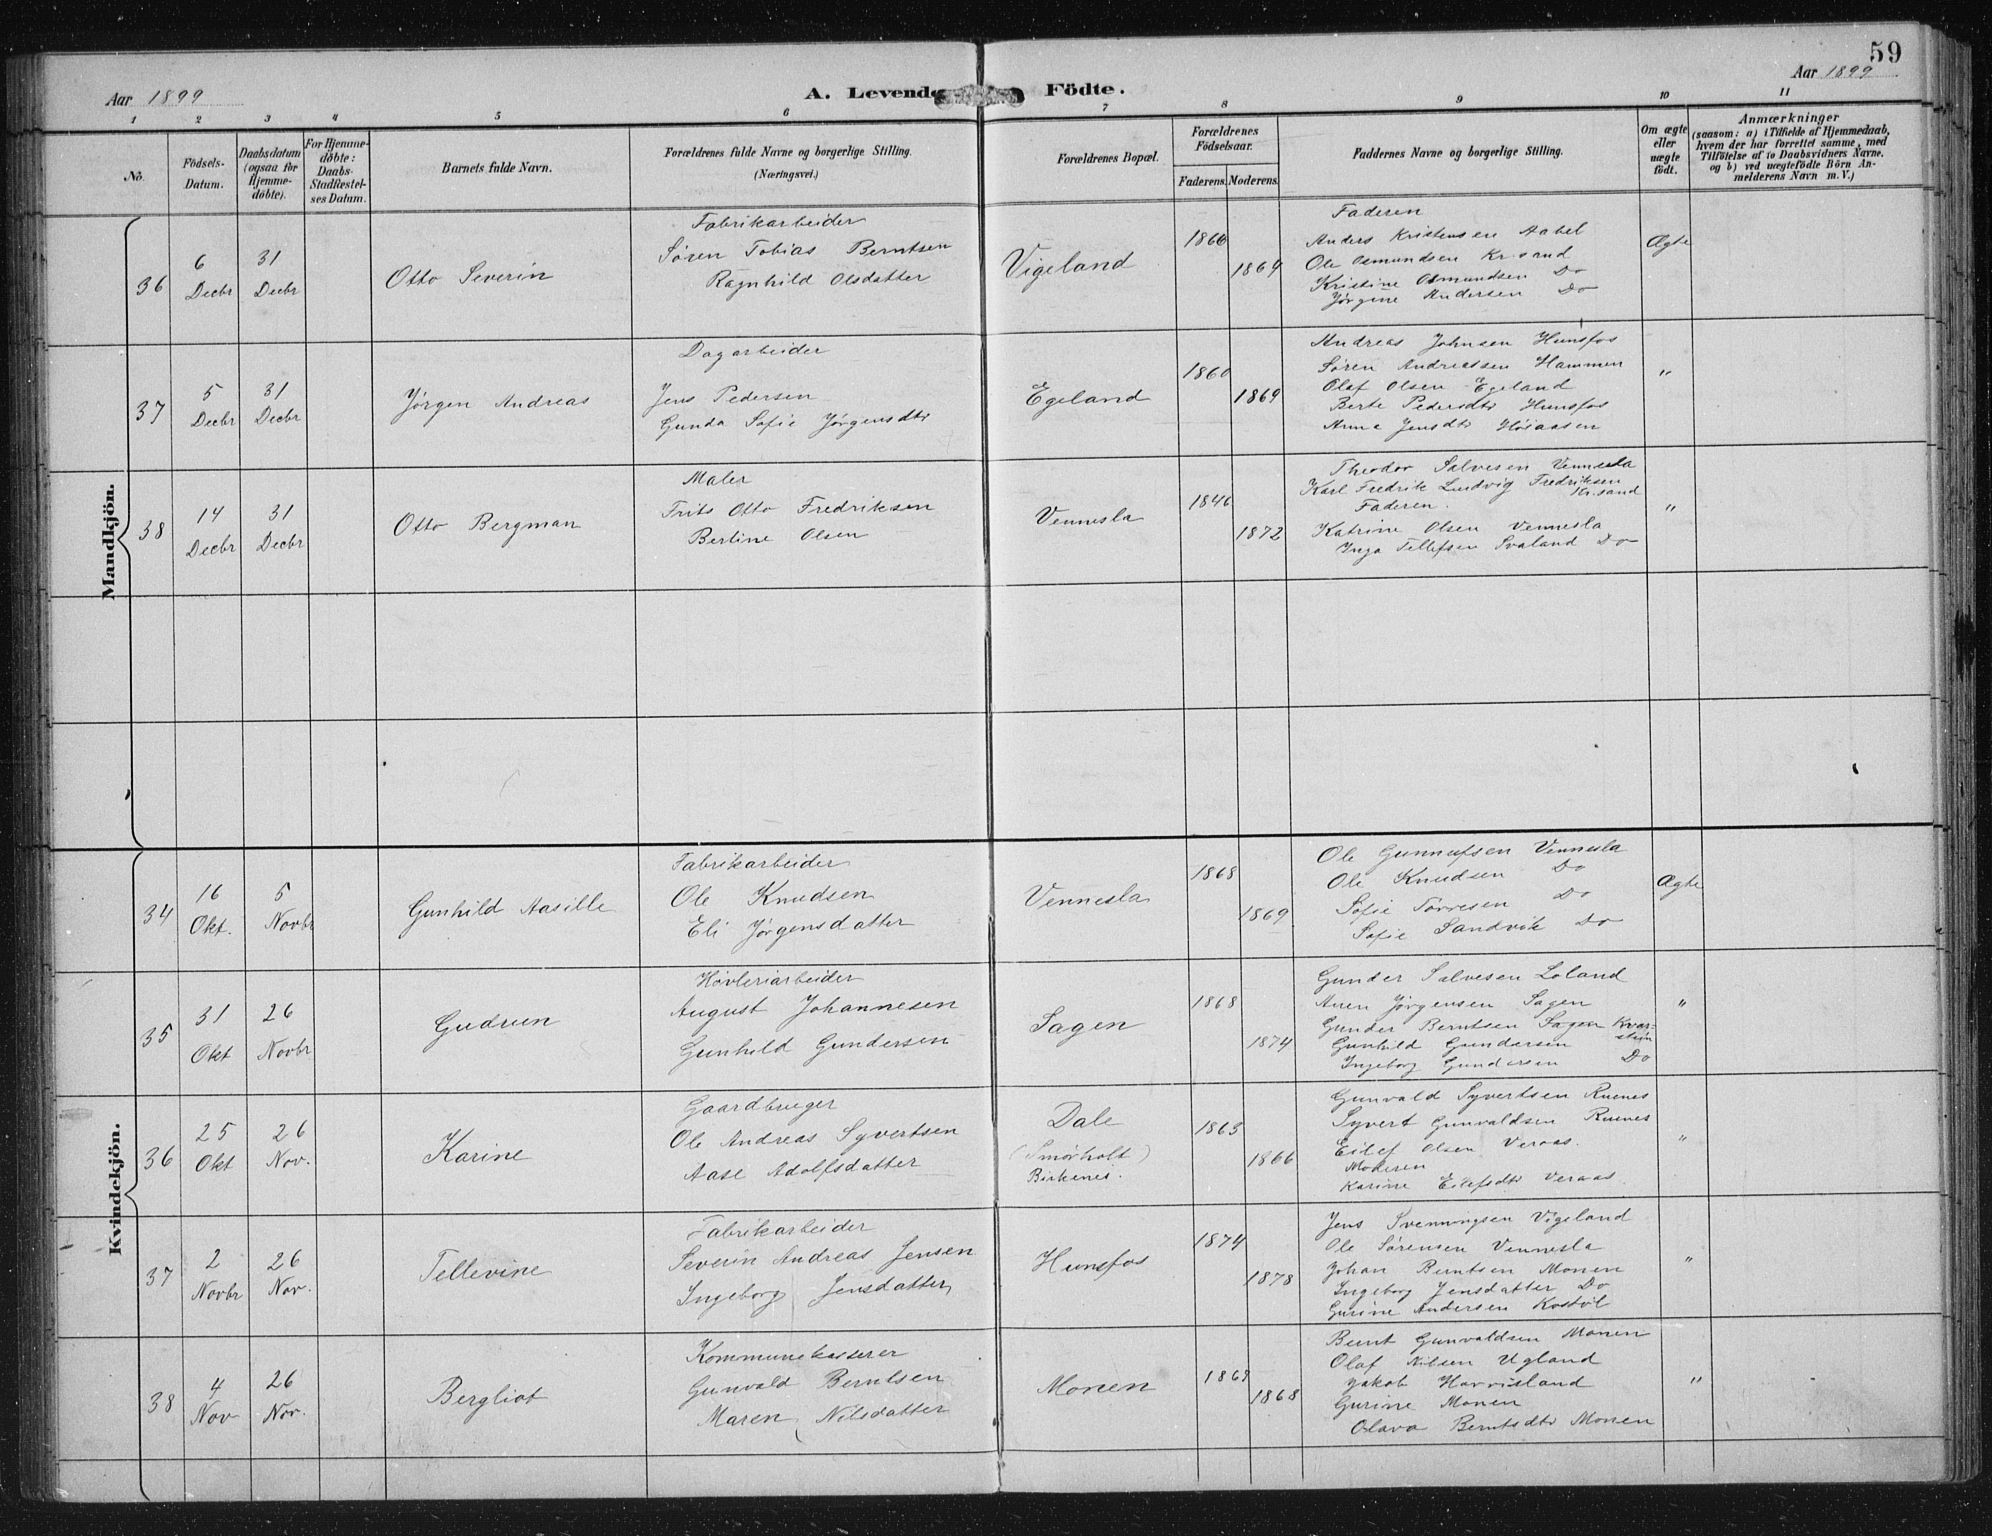 59
Aar 1899
A. Levende Födte.
Aar 1899
1 2 3 4 5 6 7 8 9 10 11
No.
Födsels-Datum.
Daabsdatum (ogsaa for Hjemme-döbte).
For Hjemme-döbte: Daabs-Stadfæstel-ses Datum.
Barnets fulde Navn.
Forældrenes fulde Navne og borgerlige Stilling.
(Næringsvei.)
Forældrenes Bopæl.
Forældrenes Födselsaar.
Faderens. Moderens.
Faddernes Navne og borgerlige Stilling.
Om ægte eller uægte födt.
Anmærkninger
(saasom: a) i Tilfælde af Hjemmedaab, hvem der har forrettet samme, med Tilföielse af to Daabsvidners Navne. og b) ved uægtefödte Börn An-melderens Navn m. V.)
Mandkjön.
36
6 Decbr
31 Decbr
Otto Severin
Fabrikarbeider
Søren Tobias Berntsen
Ragnhild Olsdatter
Vigeland
1866
1869
Faderen
Anders Kristensen Aabel
Ole Osmundsen Kr.sand
Kristine Osmundsen Do
Jørgine Andersen Do
Ægte
37
5 Decbr
31 Decbr
Jørgen Andreas
Dagarbeider
Jens Pedersen
Gunda Sofie Jørgensdtr
Egeland
1860
1869
Andreas Johnsen Hunsfos
Søren Andreassen Hammen
Olaf Olsen Egeland
Berte Pedersdtr Hunsfos
Anna Jensdtr Høiaasen
"
38
14 Decbr
31 Decbr
Otto Bergman
Maler
Frits Otto Fredriksen
Bertine Olsen
Vennesla
1846
1872
Theodor Salvesen Vennesla
Karl Fredrik Ludvig Fredriksen Kr.sand
Faderen.
Katrine Olsen Vennesla
Inga Tellefsen Svaland Do
"
Kvindekjön.
34
16 Okt.
5 Novbr
Gunhild Aasille
Fabrikarbeider
Ole Knudsen
Eli Jørgensdatter
Vennesla
1868
1869
Ole Gunnufsen Vennesla
Ole Knudsen Do
Sofie Tørresen Do
Sofie Sandvik Do
Ægte
35
31 Okt
26 Novbr
Gudrun
Høvleriarbeider
August Johannesen
Gunhild Gundersen
Sagen
1868
1874
Gunder Salvesen Loland
Anen Jørgensen Sagen
Gunder Berntsen Sagen Kvar-stein
Gunhild Gundersen
Ingeborg Gundersen Do
"
36
25 Okt
26 Nov.
Karine
Gaardbruger
Ole Andreas Syvertsen
Aase Adolfsdatter
Dale
(Smørholt)
Birkenes.
1863
1866
Gunvald Syvertsen Ruenes
Syvert Gunvaldsen Ruenes
Eilef Olsen Veraas.
Moderen
Karine Eilefsdtr Veraas.
"
37
2 Novbr
26 Nov.
Tellevine
Fabrikarbeider
Severin Andreas Jensen
Ingeborg Jensdatter
Hunsfos
1874
1878
Jens Svenningsen Vigeland
Ole Sørensen Vennesla
Johan Berntsen Monen
Ingeborg Jensdatter Do
Gurine Andersen Kostøl
"
38
4 Nov
26 Nov.
Bergliot
Kommunekasserer
Gunvald Berntsen
Maren Nilsdatter
Monen
1868
Bernt Gunvaldsen Monen
Olaf Nilsen Ugland
Jakob Horrisland
Gurine Monen
Olava Berntsdtr Monen
"